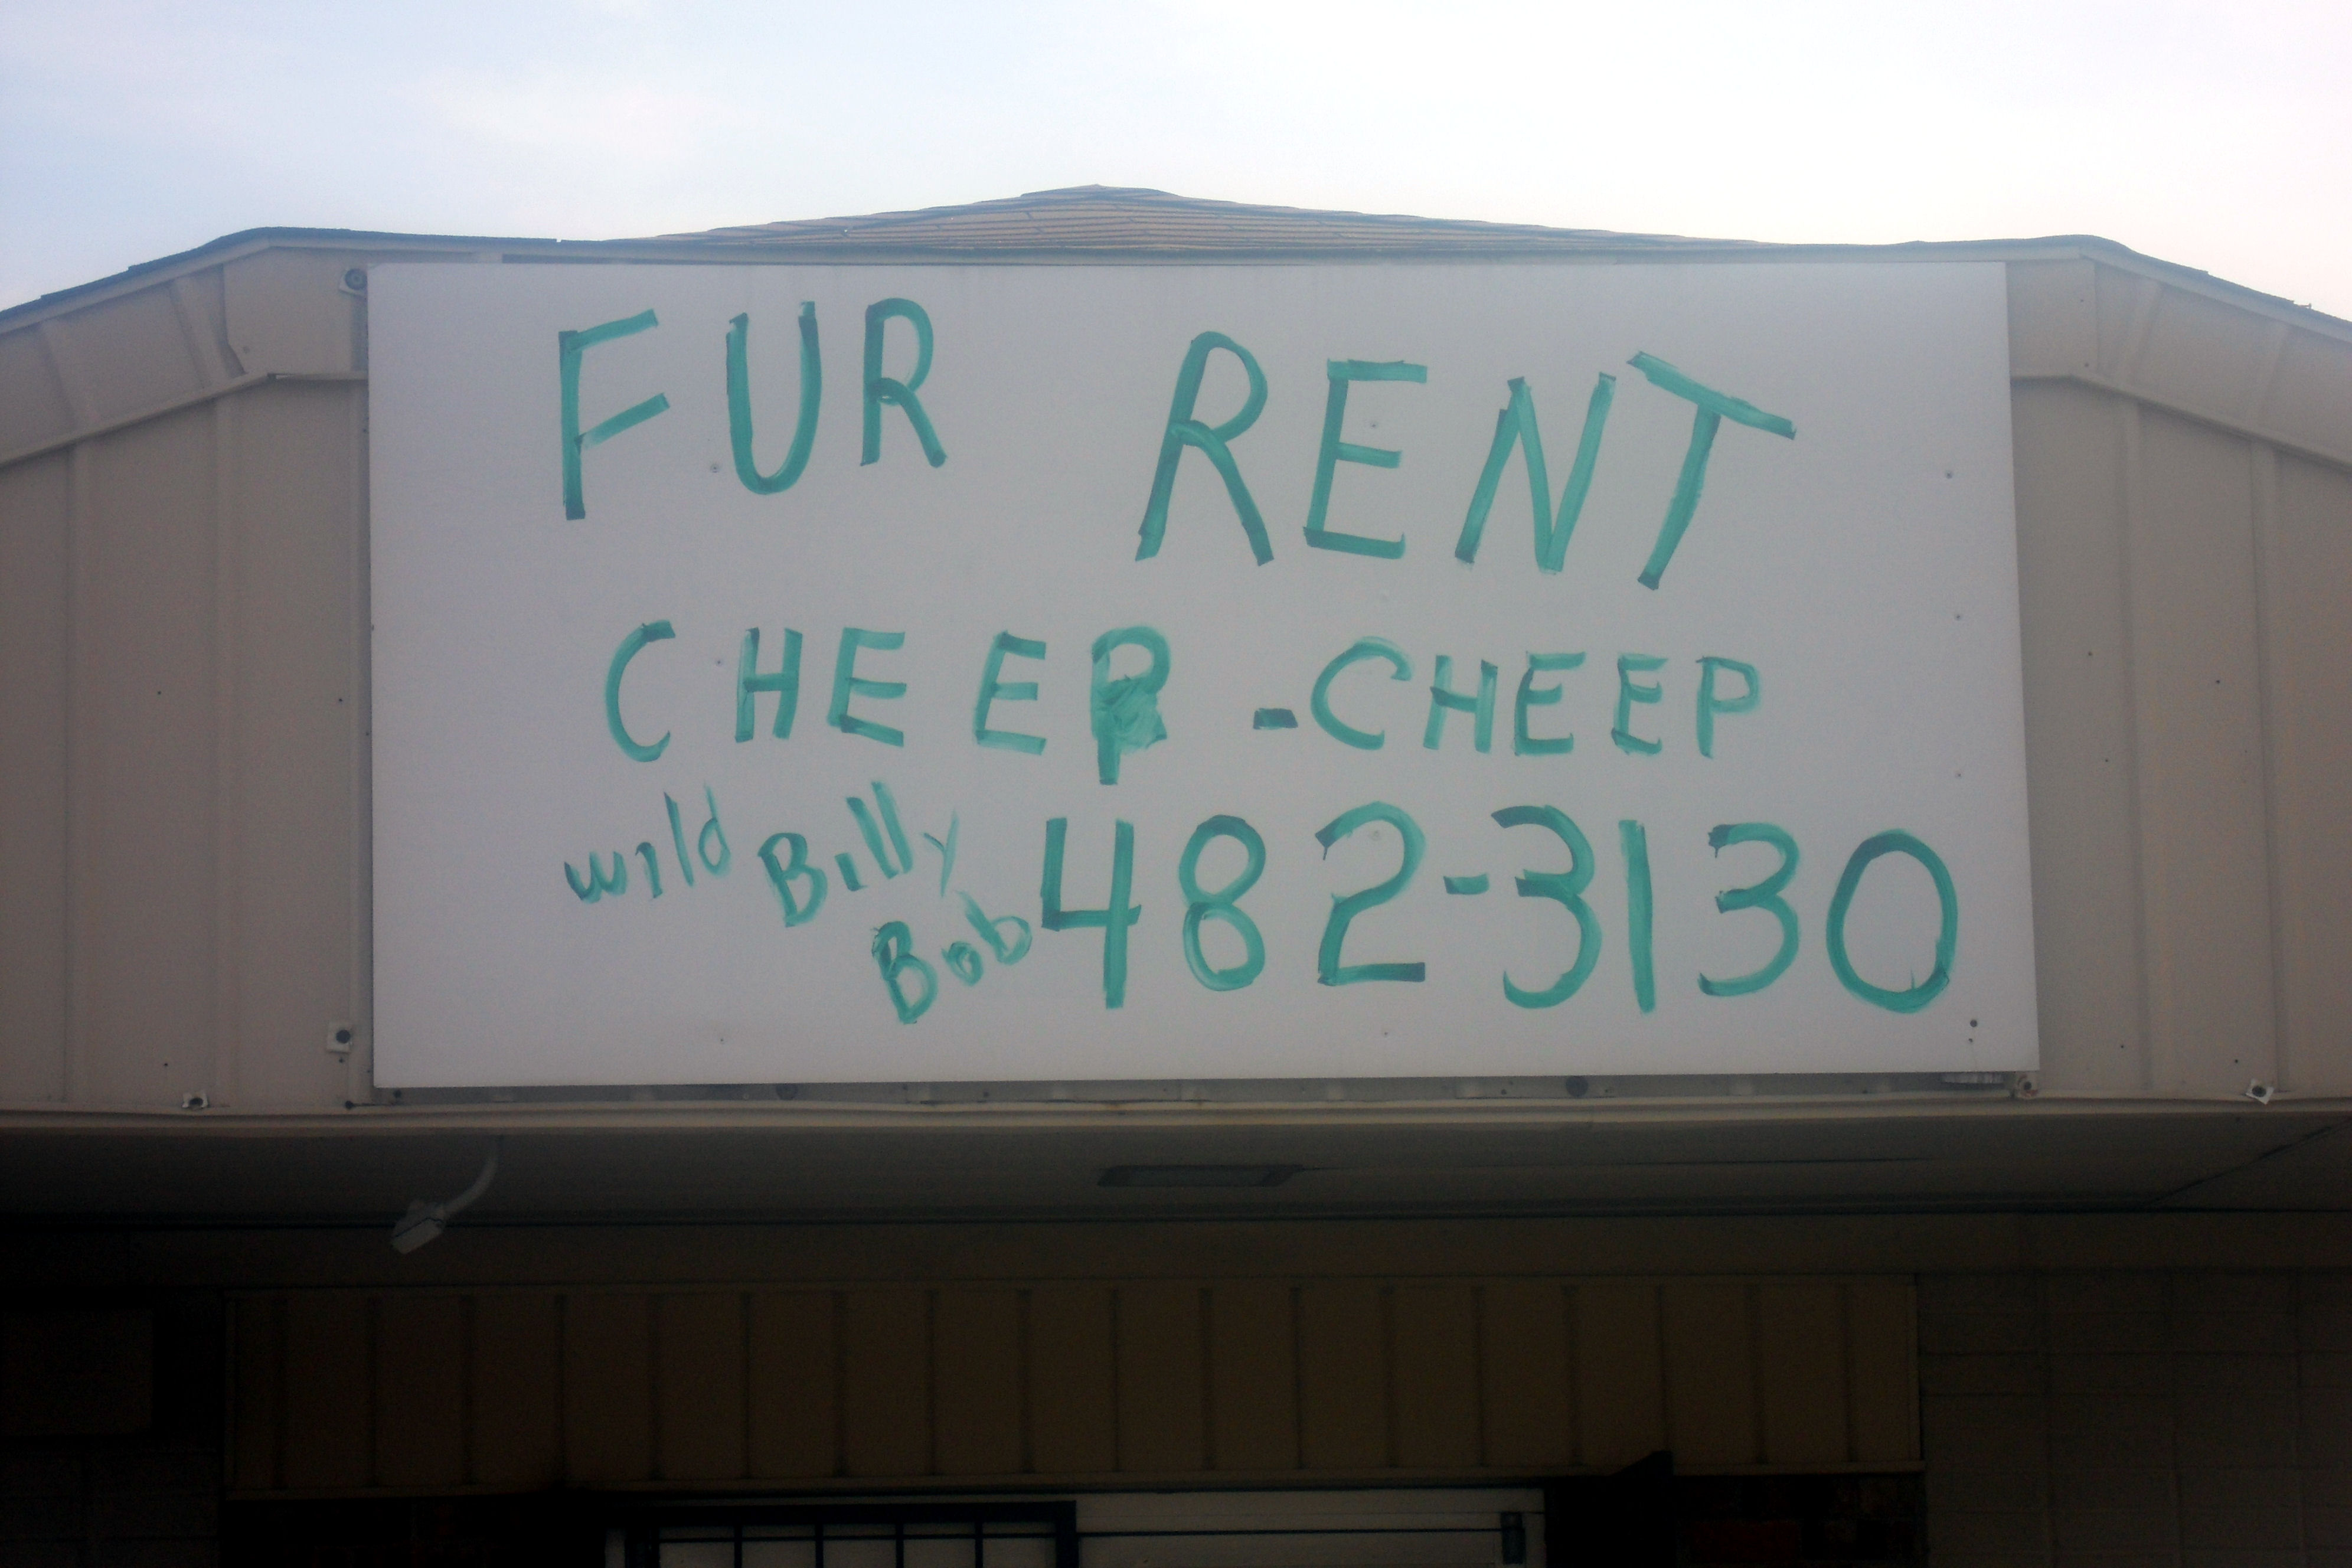 FUR RENT
CHEEP - CHEEP
Wild Billy Bob 482-3130